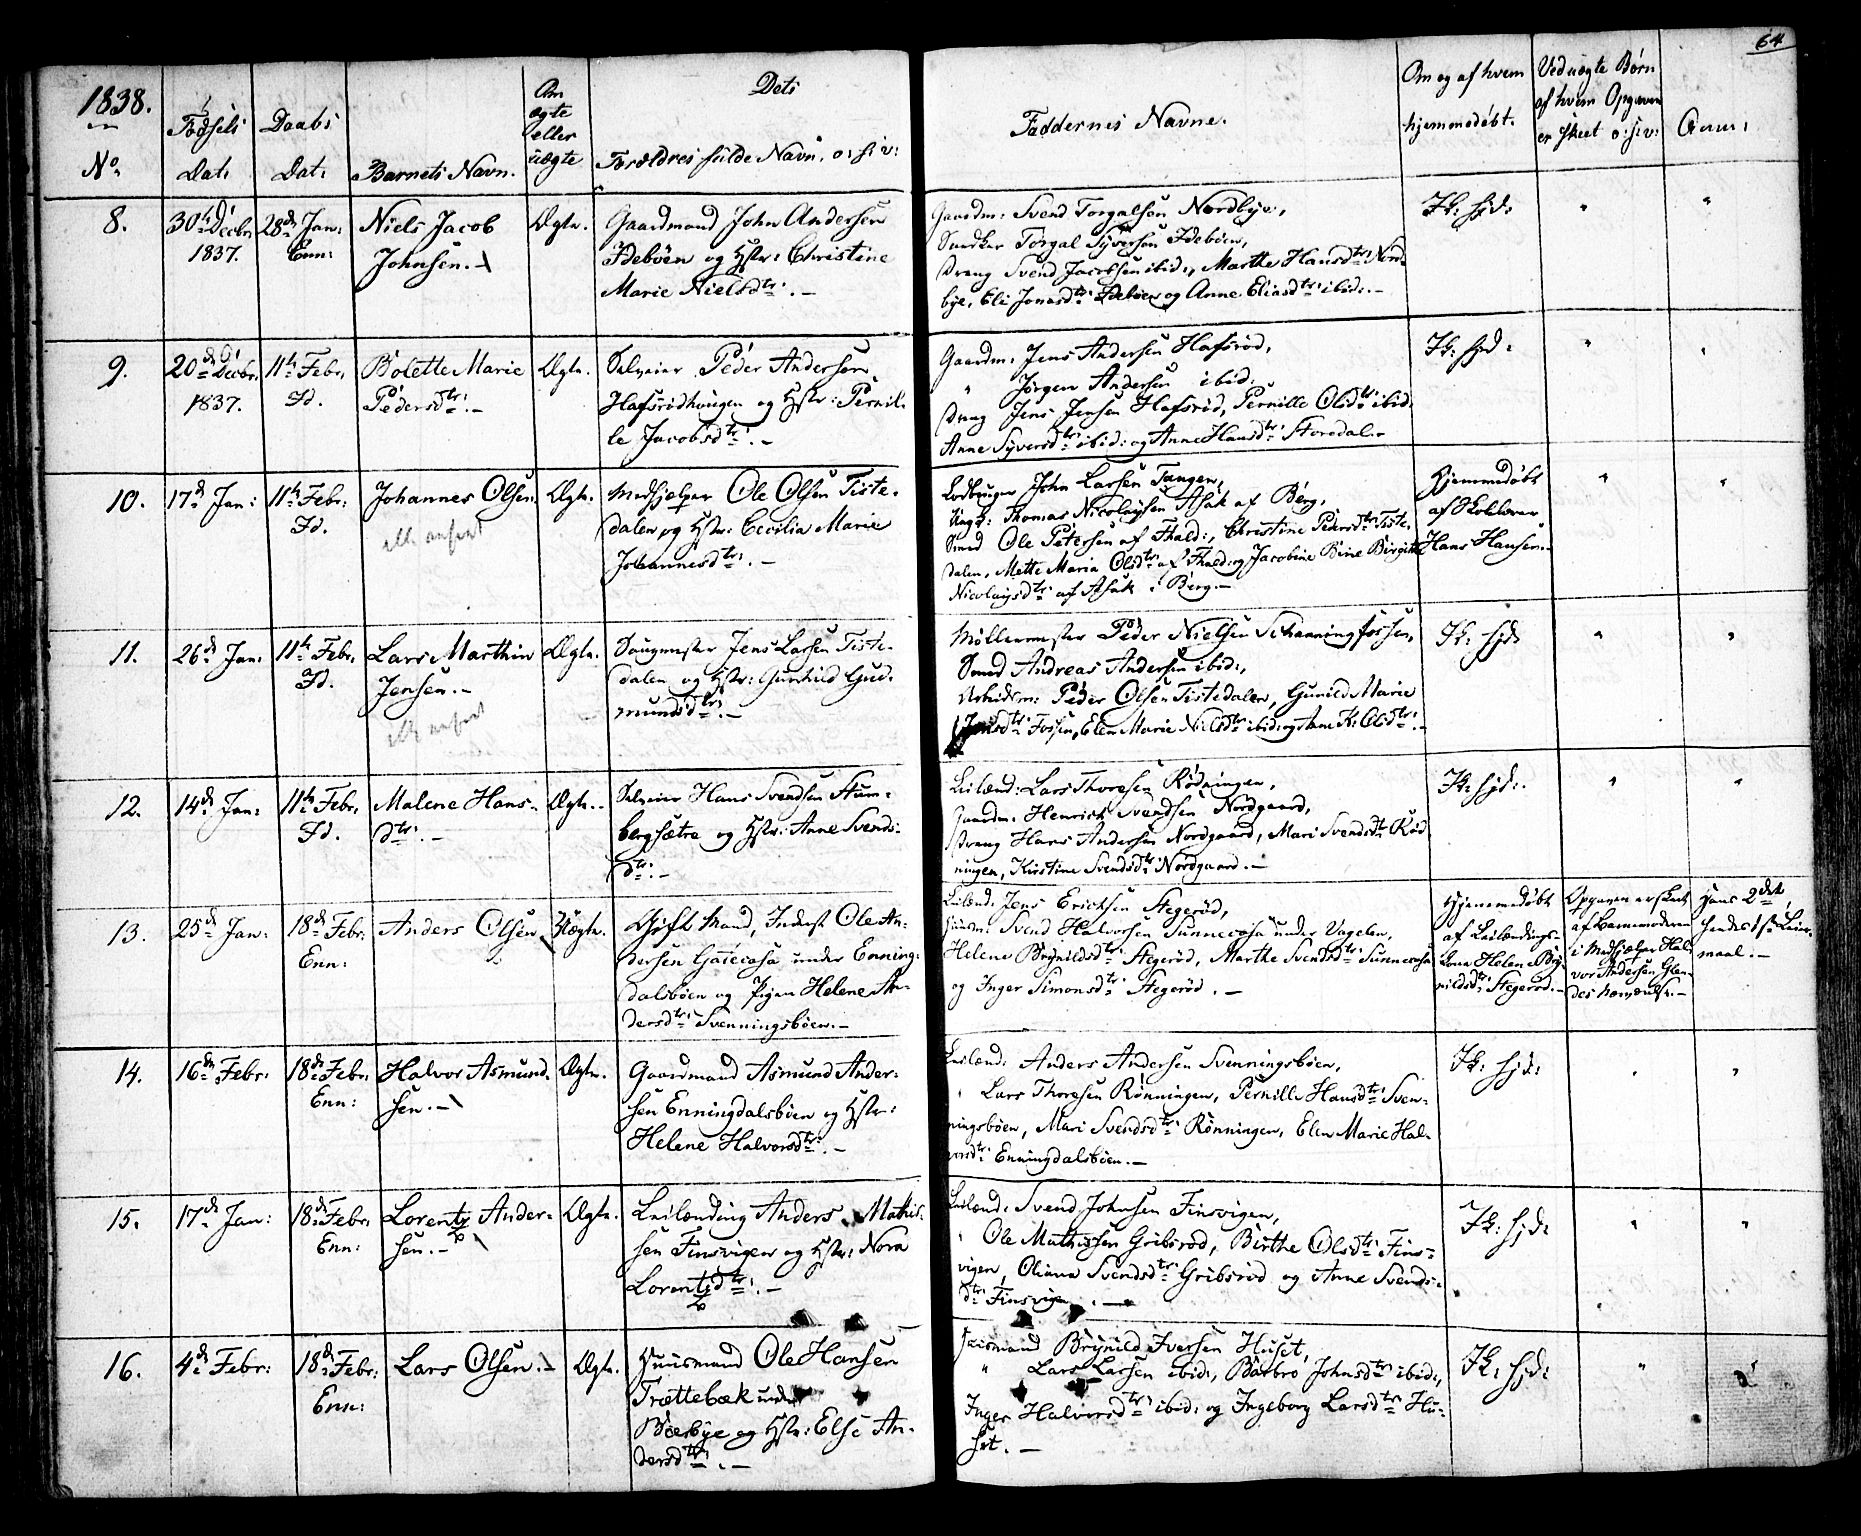 64
1838.
No
Fødsels Dat:
Daabs Dat:
Barnets Navn.
Om ægte eller uægte
Dets Forældres fulde Navn, o: s: v:
Faddernes Navne.
Om og af hvem hjemmedøbt.
Ved uægte Børn af hvem Opgaven er skeet o: s: v:
Anm:
8.
30te Decbr. 1837.
28de Jan: Enn:
Niels Jacob Johnsen.
Ægte.
Gaardmand John Andersen
Idebøen og Hstr: Christine
Marie Nielsdtr. –
Gaardm: Svend Torgalsen Nordbye,
Torgal Syversen Idebøen,
Dreng Svend Jacobsen ibid:, Marthe Hansdtr: Nord-
bye, Eli Jonasdtr: Idebøen og Anne Eliasdtr: ibid. –
Ik: hjd:
9.
20de Decbr. 1837.
11te Febr. Id.
Bolette Marie
Pedersdtr. –
Ægte.
Selveier Peder Andersen
Hafsrødhougen og Hstr: Pernil-
le Jacobsdtr. –
Gaardm: Jens Andersen Hafsrød,
" Jørgen Andersen ibid:
Dreng Jens Jensen Hafsrød, Pernille Olsdtr: ibid.
Anne Syversdtr: ibid: og Anne Hansdtr: Storedal. –
Ik: hjd:
10.
17de Jan:
11te Febr: Id.
Johannes Olsen.
Ægte.
Medhjelper Ole Olsen Tiste-
dalen og Hstr: Cecilia Marie
Johannesdtr: –
John Larsen Tangen,
Ungk: Thomas Nicolaysen Asak af Berg,
Smed Ole Petersen af Fhald:, Christine Pedersdtr: Tiste-
dalen, Mette Maria Olsdtr: af Fhald: og Jacobine Bine Birgitte
Nicolaysdtr: af Asak i Berg. –
Hjemmedøbt
af Skolelærer
Hans Hansen. –
11.
26de Jan:
11te Febr. Id.
Lars Marthin
Jensen. –
Ægte.
Saugmester Jens Larsen Tiste-
dalen og Hstr: Gunhild Gud-
mundsdtr. –
Møllermester Peder Nielsen Schanningfossen,
Smed Andreas Andersen ibid:,
Arbeidsm: Peder Olsen Tistedalen, Gunild Marie
Jensdtr: Fossen, Elen Marie Nielsdtr: ibid: og Anne K: Olsdtr: –
Ik: hjd:
12.
14de Jan:
11te Febr: Id.
Malene Hans-
dtr: –
Ægte.
Selveier Hans Svendsen Stum-
bergsætre og Hstr: Anne Svends-
dtr: –
Leilænd: Lars Thoresen Rødningen,
Gaardm: Henrich Svendsen Nordgaard,
Dreng Hans Andersen Nordgaard, Mari Svendsdtr: Rød-
ningen, Kirstine Svendsdtr: Nordgaard. –
Ik: hjd:
13.
25de Jan:
18de Febr: Enn:
Anders Olsen
Uægte.
Gift Mand, Inderst Ole An-
dersen under Enning-
dalsbøen og Pigen Helene An-
dersdtr: Svenningsbøen. –
Leilænd: Jens Ericksen Stegerød,
Huusm: Svend Halvorsen Sunnecasa under Vagelen,
Helene Brynildsdtr: Stegerød, Marthe Svendsdtr: Sunnecasa
og Inger Simonsdtr: Stegerød. –
Hjemmedøbt
af Leilændings-
kone Helene Bry-
nildsdtr: Stegerød. –
Opgaven er skeet
af Barnemoderen
i Medhjælper Hal-
vor Andersen Glen-
des Nærværelse. –
Hans 2det,
hendes 1ste Leier-
maal. –
14.
16de Febr:
18de Febr: Enn:
Halvor Asmund-
sen. –
Ægte.
Gaardmand Asmund Ander-
sen Enningdalsbøen og Hstr:
Helene Halvorsdtr: –
Leilænd: Anders Andersen Svenningsbøen,
" Lars Thoresen Rønningen, Pernille Hansdtr: Sven-
ningsbøen, Mari Svendsdtr: Rønningen, Elen Marie Hal-
vorsdtr: Enningdalsbøen. –
Ik: hjd:
15.
17de Jan:
18de Febr: Enn:
Lorentz Ander-
sen. –
Ægte.
Leilænding Anders Mathis-
sen Finsvigen og Hstr: Nora
Lorentzdtr: –
Leilænd: Svend Johnsen Finsvigen,
" Ole Mathissen Gribsrød, Birthe Olsdtr: Fins-
vigen, Oliana Svendsdtr: Gribsrød og Anne Svends-
dtr: Finsvigen. –
Ik: hjd:
16.
4de Febr:
18de Febr: Enn:
Lars Olsen. –
Ægte.
Huusmand Ole Hansen
Trættebæk under
Bærbye og Hstr: Else An-
dersdtr: –
Huusmand Brynild Iversen Huset,
" Lars Larsen ibid:, Barbro Johnsdtr: ibid:,
Inger Halvorsdtr: ibid: og Ingeborg Larsdtr: Hu-
set. –
Ik: hjd: